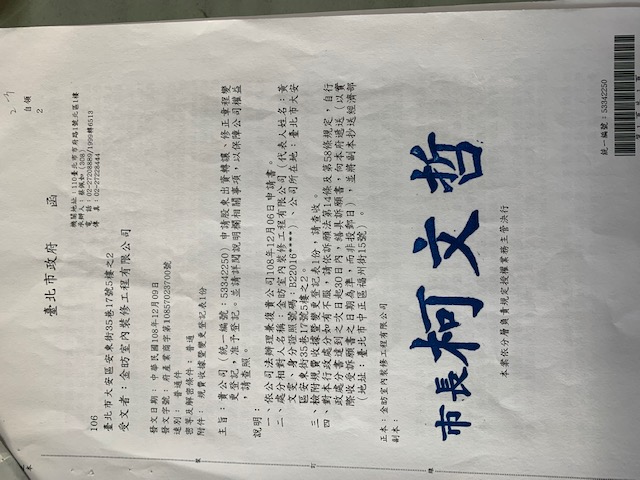 自領
2
臺北市政府　函
機關地址：110臺北市市府路1號北區1樓
承辦人：蔡佩如(308)
電話：02-27208889/1999轉6513
傳真：02-27228444
106
臺北市大安區安東街35巷17號5樓之2
受文者：金昉室內裝修工程有限公司
發文日期：中華民國108年12月09日
發文字號：府產業商字第10857023700號
速別：普通件
密等及解密條件：普通
附件：規費收據暨變更登記表1份
主旨：貴公司（統一編號：53342250）申請股東出資轉讓、修正章程變
更登記，准予登記。並請詳閱說明欄相關事項，以保障公司權益
，請查照。
說明：
一、依公司法辦理兼復貴公司108年12月06日申請書。
二、處分相對人名稱：金昉室內裝修工程有限公司（代表人姓名：黃
文宏，身分證照號碼：B22016****）、公司所在地：臺北市大安
區安東街35巷17號5樓之2。
三、檢附規費收據暨變更登記表1份，請查收。
四、對本行政處分如有不服，請依訴願法第14條及第58條規定，自行
政處分書達到之次日起30日內，繕具訴願書，向本府遞送（以實
際收受訴願書之日期為準，而非投郵日），並將副本抄送經濟部
（地址：臺北市中正區福州街15號）。
正本：金昉室內裝修工程有限公司
副本：
市長柯文哲
本案依分層負責規定授權業務主管決行
統一編號：53342250